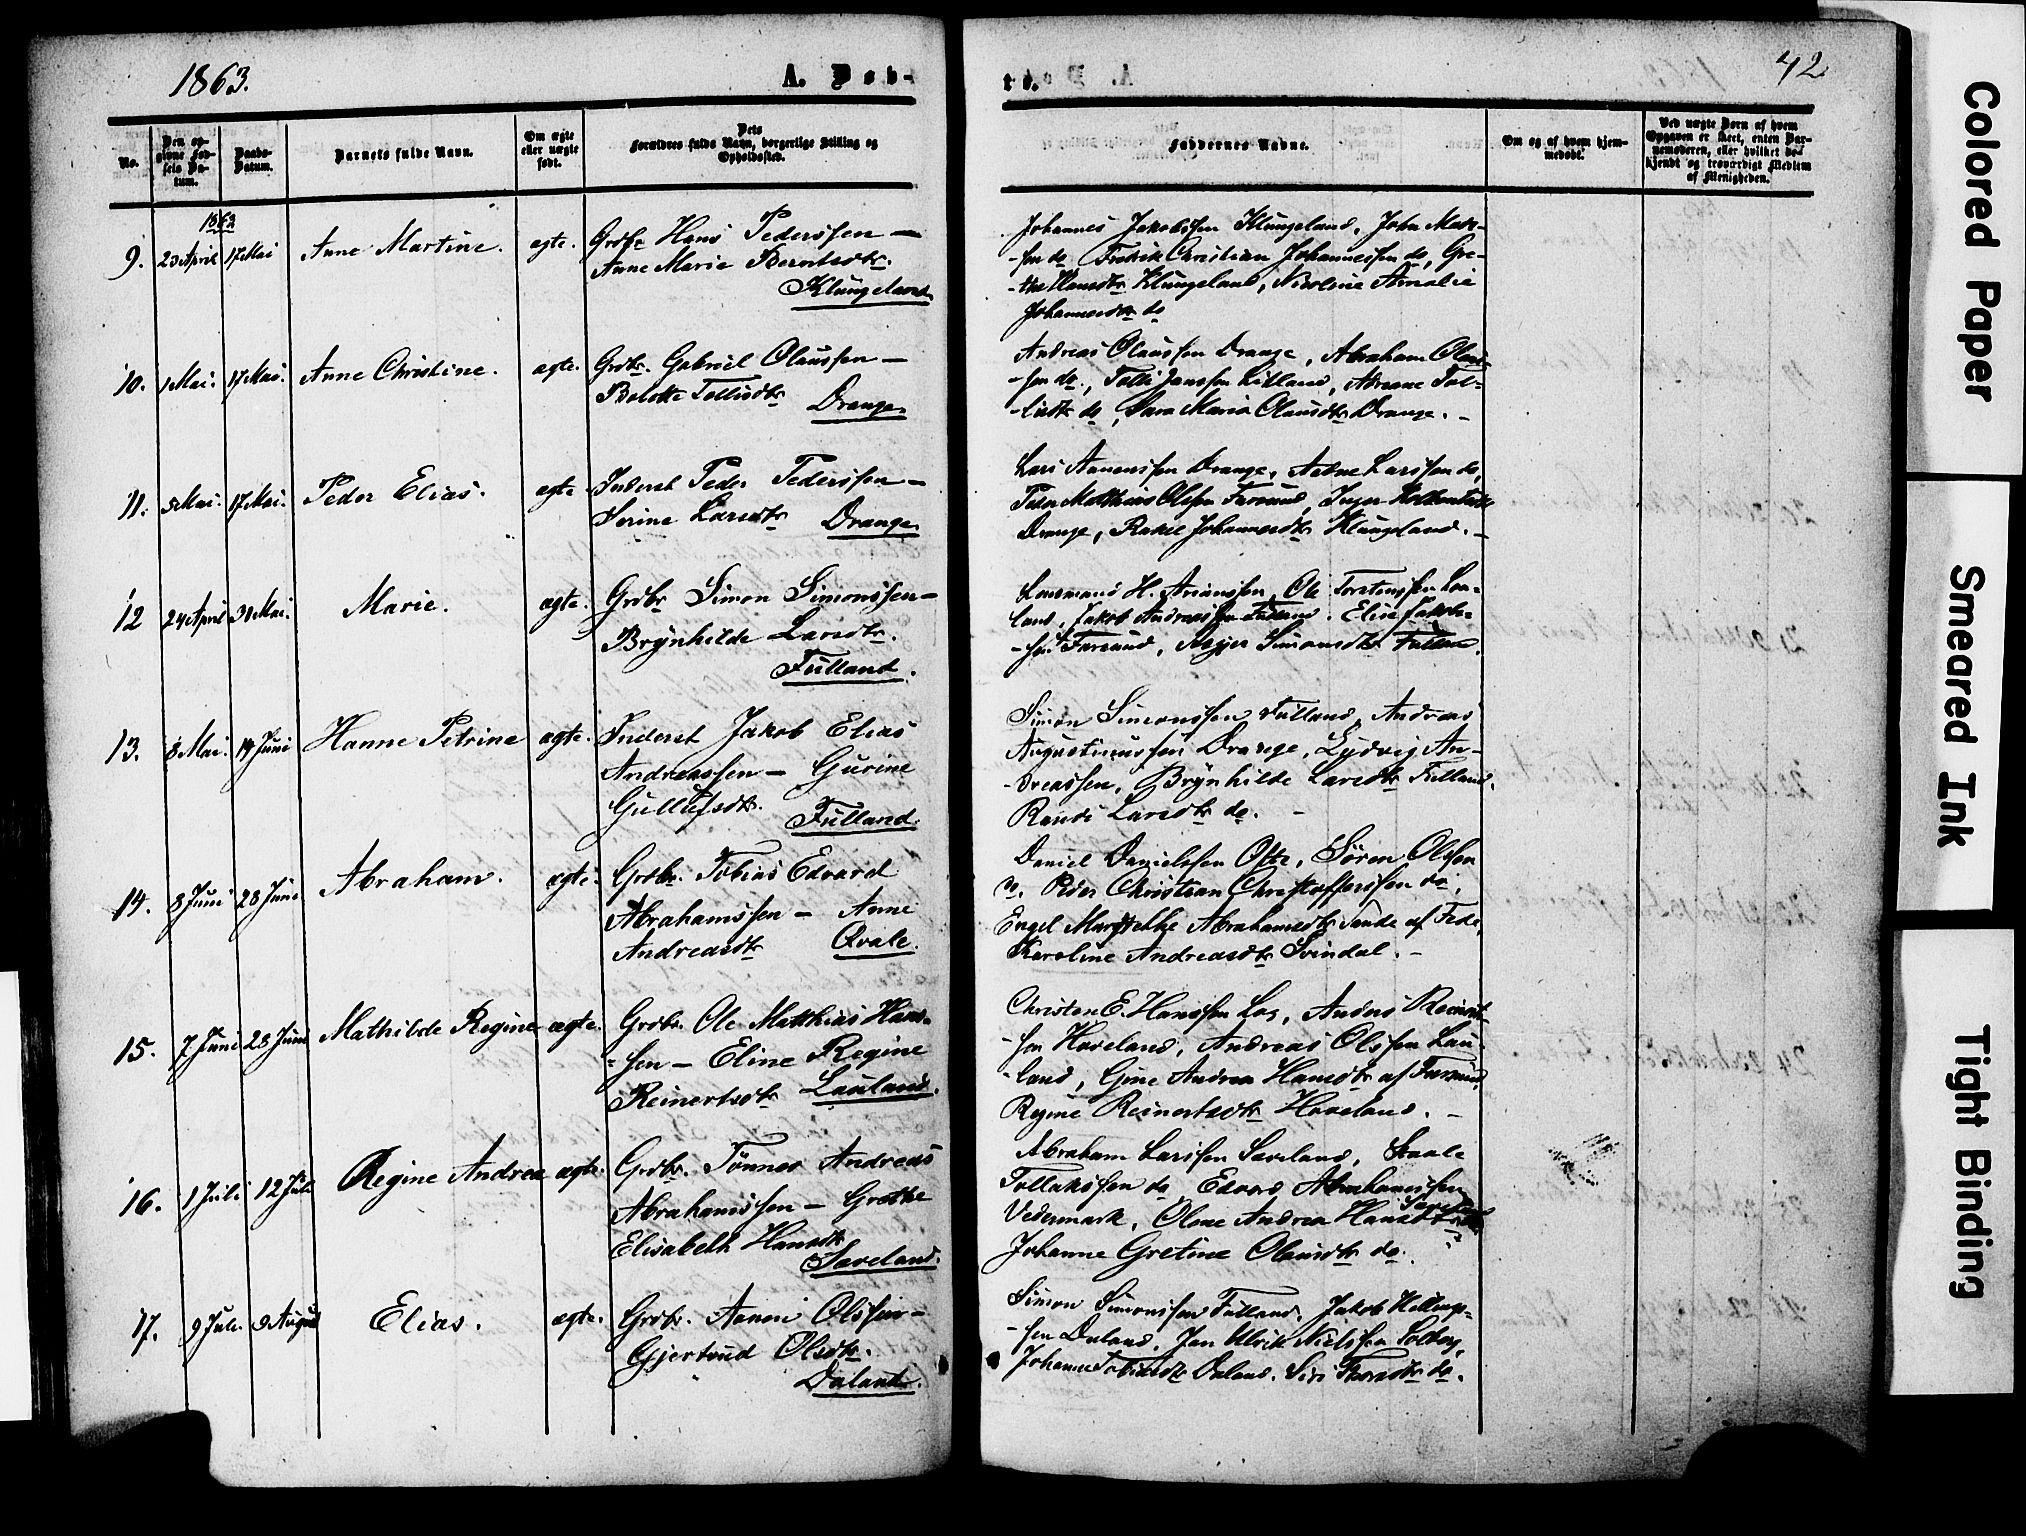 1863.
A. Døb-
te.
42
No.
Den opgivne Fødsels Datum.
Daabs-Datum.
Barnets fulde Navn.
Om ægte eller uægte født.
Dets Forældres fulde Navn, borgerlige Stilling og Opholdssted.
Faddernes Navne.
Om og af hvem hjemmedøbt.
Ved uægte Børn af hvem Opgaven er skeet, enten Barnemoderen, eller hvilket bekjendt og troværdigt Medlem af Menigheden.
9. 23 April 17 Mai Anne Martine. ægte. Grdbr Hans Pederssen –
Anne Marie Berntsdtr.
Klungeland
Johannes Jakobssen Klungeland, John
-sen do Fredrik Christian Johannessen do, Gre-
-the Hansdtr Klungeland, Nicoline Amalie
Johannesdtr do
10. 1 Mai. 17 Mai. Anne Christine. ægte. Grdbr. Gabriel Olaussen –
Bolette Tollisdtr
Drange.
Andreas Olaussen Drange, Abraham Olaus-
-sen do., Tolli Janssen Litland, Adriane Tol-
-lisdtr do, Sara Maria Olausdtr Drange. –
11. 5 Mai. 17 Mai. Peder Elias. ægte Inderst Peder Pederssen –
Serine Larsdtr Drange
Lars Aanenssen Drange, Aadne Larssen do,
Peder Matthias Olssen Farsund, Inger
Drange, Rakel Johannesdtr Klungland. –
12 24 April 30 Mai. Marie. ægte. Grdbr Simon Simonssen –
Brÿnhilde Larsdtr.
Fulland.
Lensmand H. Arianssen, Ole Torstenssen Lau-
land, Jakob Andreassen Fulland. Elise
Farsund, Simonsdtr Fulland.
13. 8 Mai. 14 Juni Hanne Petrine ægte. Inderst Jakob Elias
Andreassen – Gurine
Gullufsdtr. Fulland.
Simon Simonssen Fulland, Andreas
Augustinussen Drange, Ludvig An-
-dreassen, Brÿnhilde Larsdtr Fulland.
Randi Larsdtr do. –
14. 8 Juni 28 Juni Abraham. ægte. Grdbr. Tobias Edvard
Abrahamssen – Anne
Andreasdtr Qvale.
Daniel Danielssen Ofte, Sören Olssen
do. Peder Christian Christofferssen do,
Engel Abrahamsdtr Sande af Fede,
Karoline Andreasdtr Svindal. –
15. 7 Juni 28 Juni Mathilde Regine ægte. Grdbr. Ole Matthias Hans-
-sen – Eline Regine
Reinertsdtr Lauland.
Christen E. Hanssen Log, Anders Reinert-
-sen Haveland, Andreas Olssen Lau-
-land, Gine Andrea Hansdtr af Farsund,
Regine Reinertsdtr Haveland. –
16. 1 Juli 12 Juli Regine Andrea ægte. Grdbr. Tönnes Andreas
Abrahamssen – Grethe
Elisabeth Hansdtr
Saveland.
Abraham Larssen Saveland, Staale
Tollakssen do Edvard Abrahamssen
Vedermark, Olene Andrea Hansdtr
Johanne Gretine Olausdtr do.
17. 9 Juli 9 August Elias. ægte. Grdbr. Aanen Olssen –
Gjertrud Olsdtr.
Daland.
Simon Simonssen Fulland, Jakob
-sen Daland, Jan Ulrik Nielssen Solberg,
Johanne Tobiasdtr Daland. Siri do.
Colored Paper
Smeared Ink
Tight Binding